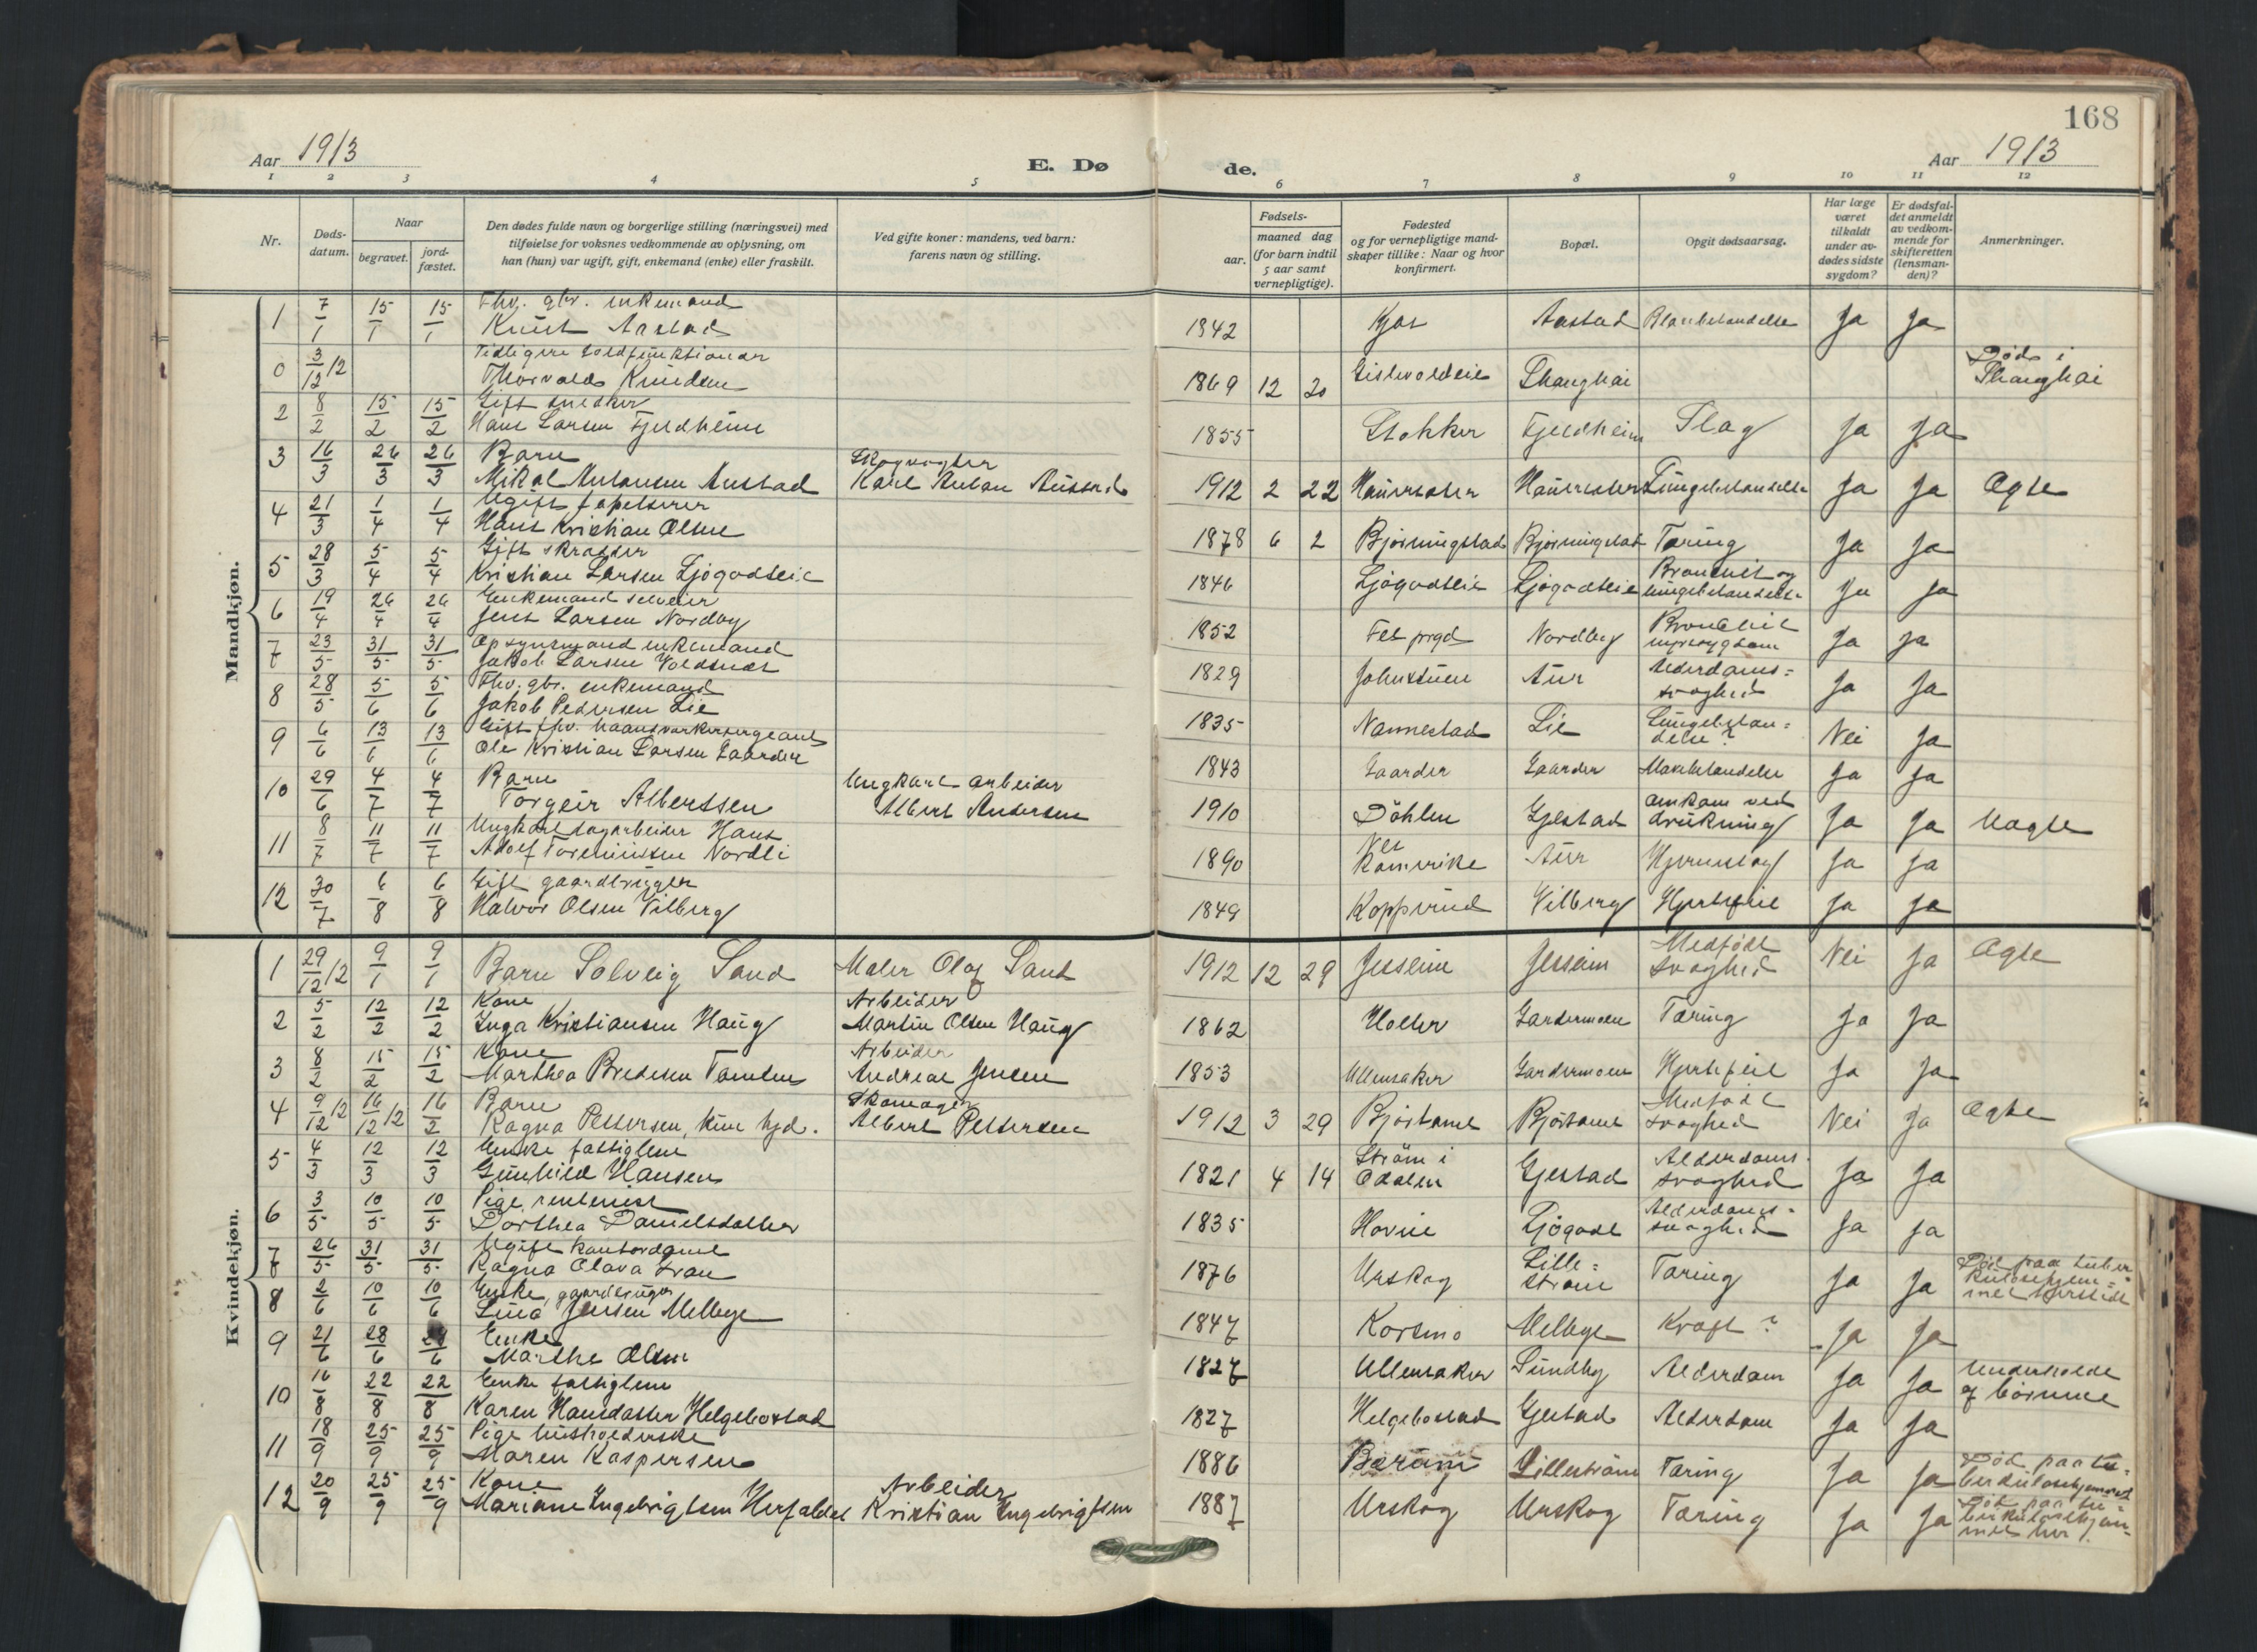 168
Aar 1913
E. Dø
de.
Aar 1913
1 2 3 4 5 6 7 8 9 10 11 12
Nr.
Døds-
datum.
Naar
begravet.
jord-
fæstet.
Den dødes fulde navn og borgerlige stilling (næringsvei) med
tilføielse for voksnes vedkommende av oplysning, om
han (hun) var ugift, gift, enkemand (enke) eller fraskilt.
Ved gifte koner: mandens, ved barn:
farens navn og stilling.
Fødsels-
aar.
maaned dag
(for barn indtil
5 aar samt
vernepligtige).
Fødested
og for vernepligtige mand-
skaper tillike: Naar og hvor
konfirmert.
Bopæl.
Opgit dødsaarsag.
Har læge
været
tilkaldt
under av-
dødes sidste
sygdom?
Er dødsfal-
det anmeldt
av vedkom-
mende for
skifteretten
(lensman-
den)?
Anmerkninger.
Mandkjøn.
1 7/1 15/1 15/1 Fhv. gbr. enkemand
Knut Aastad 1842 Kjos Aastad Ja Ja
0 3/12 12 Tidligere toldfunktionær
Thorvald Knudsen 1869 12 20 Shanghai Død i
Shanghai
2 8/2 15/2 15/2 Gift snedker
Hans Larsen Fjeldheim 1855 Stokker Fjeldheim Slag Ja Ja
3 16/3 26/3 26/3 Barn
Mikal Antonsen Austad Skogvogter
Karl Anton Austad 1912 2 22 Hauerseter Hauerseter Lungebetændelse Ja Ja Ægte
4 21/3 1/4 1/4 Ugift tapetserer
Hans Kristian Olsen 1878 6 2 Bjørningstad Bjørningstad Tæring Ja Ja
5 28/3 5/4 5/4 Gift skrædder
Kristian Larsen Ljøgodteie 1846 Ljøgodteie Ljøgodteie Bronchit og
lungebetændelse Ja Ja
6 19/4 26/4 26/4 Enkemand selveier
Jens Larsen Nordby 1852 Fet prgd Nordby Bronchit
nyresygdom Ja Ja
7 23/5 31/5 31/5 Opsynsmand enkemand
Jakob Larsen Voldsnes 1829 Johnstuen Aur Alderdoms-
svaghed Ja Ja
8 28/5 5/6 5/6 Fhv. gbr. enkemand
Jakob Pedersen Lie 1835 Nannestad Lie Lungebetæn-
delse? Nei Ja
9 6/6 13/6 13/6 Gift fhv. haandverkersergeant
Ole Kristian Larsen Gaarder 1843 Gaarder Gaarder Mavebetændelse Ja Ja
10 29/6 4/7 4/7 Barn
Torgeir Albertsen Ungkarl arbeider
Albert Andersen 1910 Døhlen Gjestad omkom ved
drukning Ja Ja Uægte
11 8/7 11/7 11/7 Ungkarl dagarbeider Hans
Adolf Toreniussen Nordli 1890 Nes
Romerike Aur Hjerneslag Ja Ja
12 30/7 6/8 6/8 Gift gaardbruger
Halvor Olsen Vilberg 1849 Kopperud Vilberg Hjertefeil Ja Ja
Kvindekjøn.
1 29/12 12 9/1 9/1 Barn Solveig Sand Maler Olaf Sand 1912 12 29 Jessheim Jessheim Medfødt
svaghed Nei Ja Ægte
2 5/2 12/2 12/2 Kone
Inga Kristiansen Haug Arbeider
Martin Olsen Haug 1862 Holter Gardermoen Tæring Ja Ja
3 8/2 15/2 15/2 Kone
Marthea Bredesen Arbeider
Andreas Jensen 1853 Ullensaker Gardermoen Hjertefeil Ja Ja
4 9/12 12 16/12 12 16/2 Barn
Ragna Pettersen, Skomager
Albert Pettersen 1912 3 29 Bjørtomt Bjørtomt Medfødt
svaghed Nei Ja Ægte
5 4/3 12/3 12/3 Enke fattiglem
Gunhild Hansen 1821 4 14 Strøm i
Odalen Gjestad Alderdoms-
svaghed Ja Ja
6 3/5 10/5 10/5 Pige, rentenist
Dorthea Danielsdatter 1835 Hovin Ljøgodt Alderdoms-
svaghed Ja Ja
7 26/5 31/5 31/5 Ugift kontordame
Ragna Olava 1876 Urskog Lille-
strøm Tæring Ja Ja Død paa tuber
kulosehjem-
met
8 2/6 10/6 10/6 Enke, gaardbruger
Lina Jensen Melbye 1847 Korsmo Melbye Kræft? Ja Ja
9 21/6 28/6 28/6 Enke
Marthe Olsen 1827 Ullensaker Sundby Alderdom Ja Ja Underholdt
af børnene
10 16/8 22/8 22/8 Enke fattiglem
Karen Hansdatter Helgebostad 1827 Helgebostad Gjestad Alderdom Ja Ja
11 18/9 25/9 25/9 Pige husholderske
Maren Kaspersen 1886 Bærum Lillestrøm Tæring Ja Ja Død paa tu-
berkulosehjemmet
12 20/9 25/9 25/9 Kone
Mariane Ingebrigtsen Herfaldet Arbeider
Kristian Ingebrigtsen 1887 Urskog Urskog Tæring Ja Ja Død paa tu-
berkulosehjem-
met her.